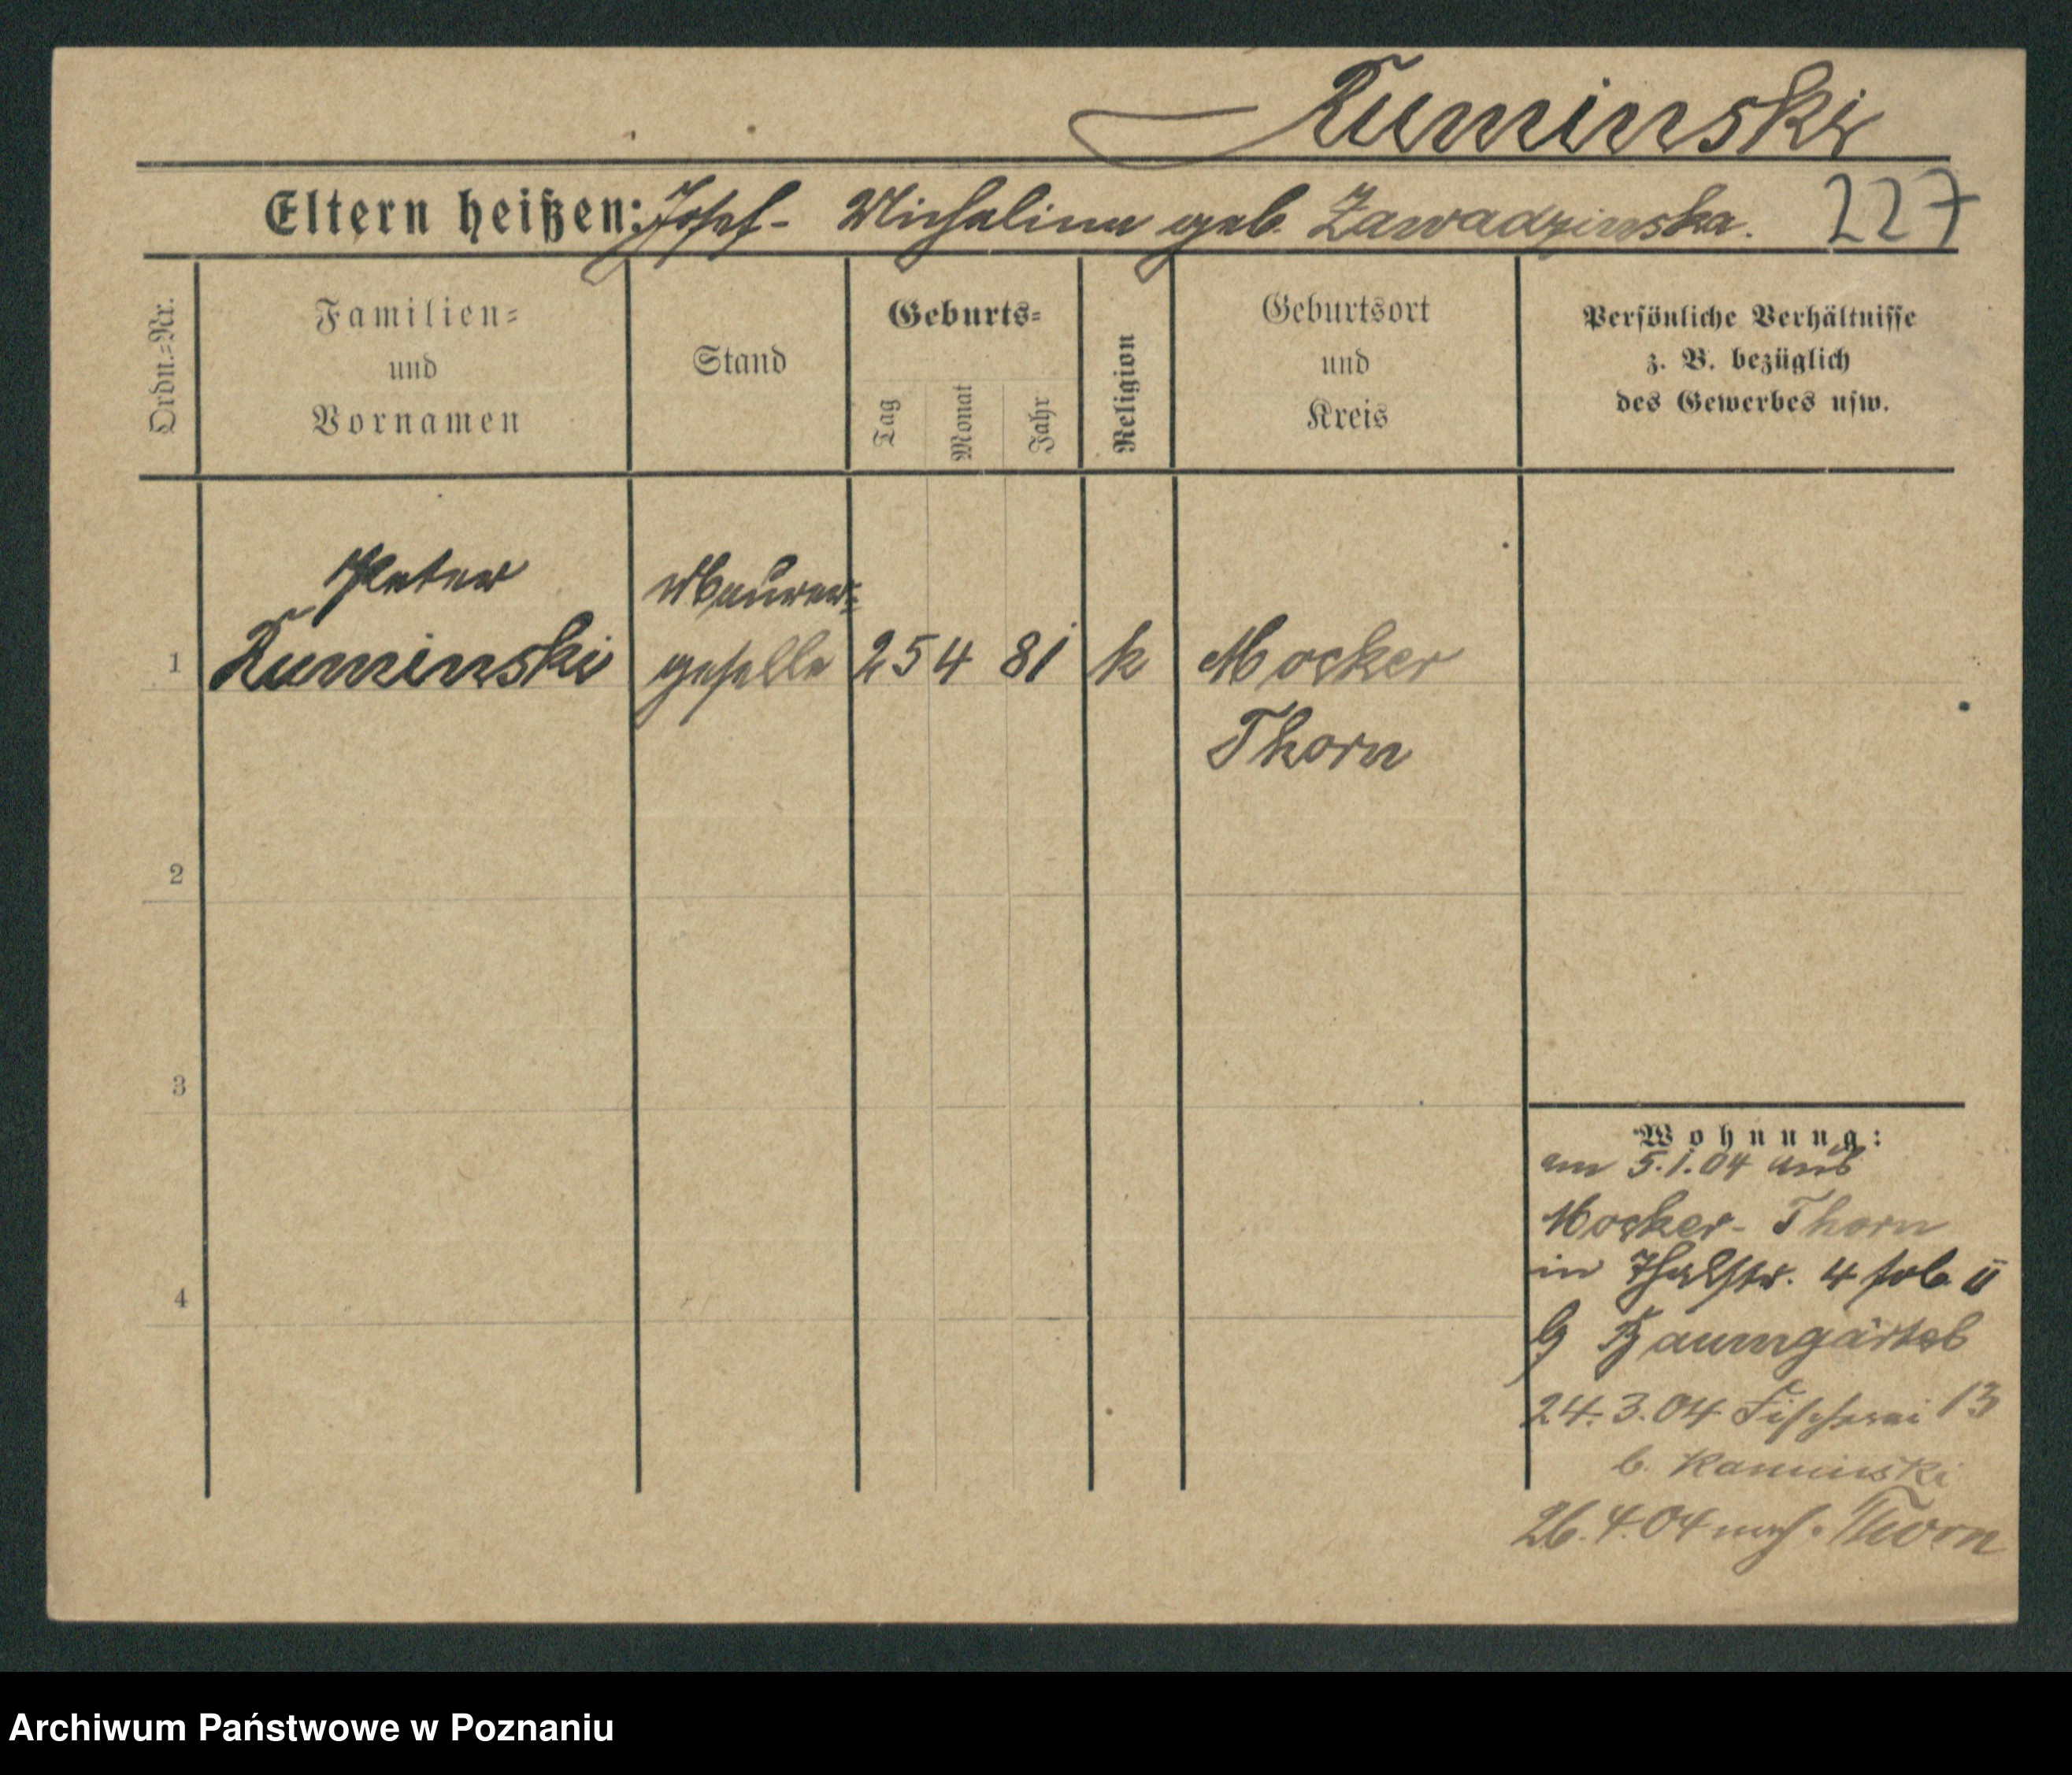 Ruminski
Eltern heißen: Josef - Michalina geb. Zawadzinska. 227
Ordn.=Nr.
Familien=
und
Vornamen
Stand
Geburts=
Tag
Monat
Jahr
Religion
Geburtsort
und
Kreis
Persönliche Verhältnisse
z. B. bezüglich
des Gewerbes usw.
Peter Maurer=
1 Ruminski geselle 25 4 81 k Mocker
Thorn
2
3
4
Wohnung:
am 5.1.04 aus
Mocker - Thorn
in Thalstr. 4 II
Baumgärtel
24.3.04 Fischerei 13
b. Kaminski
26.4.04 nach Thorn
Archiwum Państwowe w Poznaniu